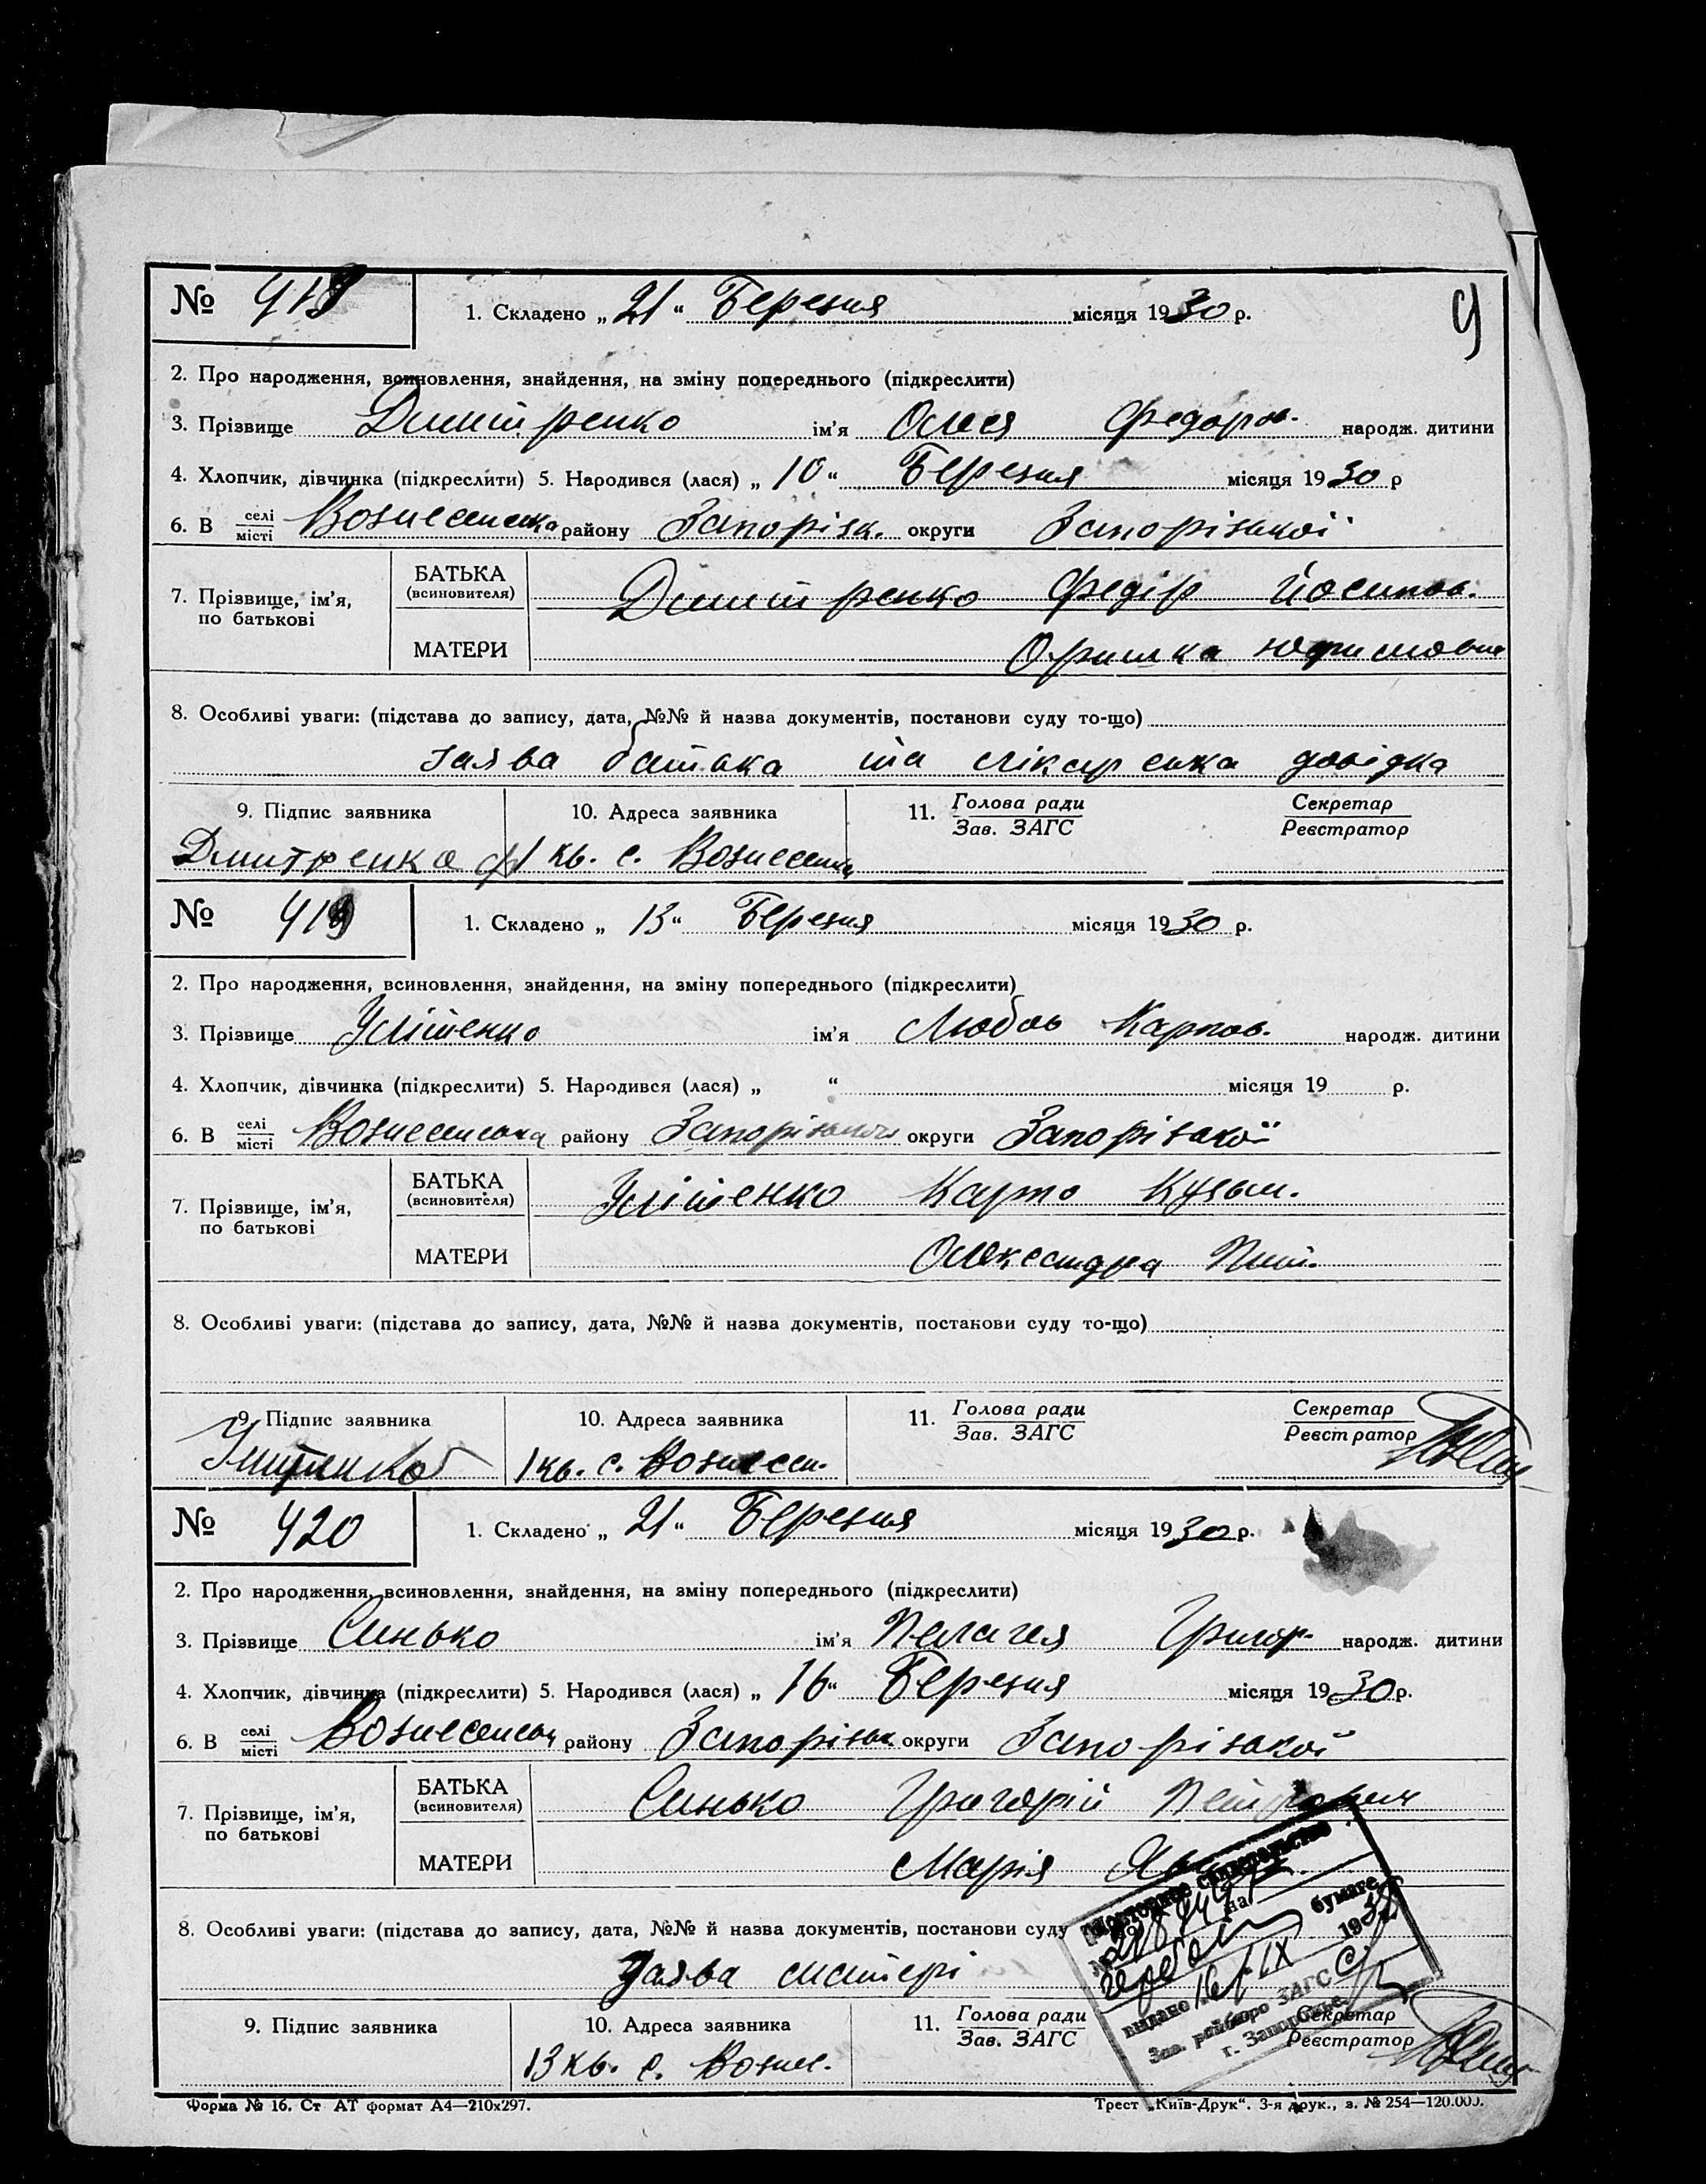 № 418 1. Складено „ 21 “ Березня місяця 1930 р. 9
2. Про народження, всиновлення, знайдення, на зміну попереднього (підкреслити)
3. Прізвище Дмитренко ім’я Олеся Федоров. народж. дитини
4. Хлопчик, дівчинка (підкреслити) 5. Народився (лася) „ 10 “ Березня місяця 1930 р
6. В селі/місті Вознесенська району Запорізк. округи Запорізької
7. Прізвище, ім’я, по батькові БАТЬКА (всиновителя) Дмитренко Федір Йосипов.
МАТЕРИ Оришка
8. Особливі уваги: (підстава до запису, дата, №№ й назва документів, постанови суду то-що)
заява батька та лікарська довідка
9. Підпис заявника 10. Адреса заявника 11. Голова ради/Зав. ЗАГС Секретар/Реєстратор
Дмитренко Ф 1 кв. с. Вознесенка
№ 419 1. Складено „ 13 “ Березня місяця 1930 р.
2. Про народження, всиновлення, знайдення, на зміну попереднього (підкреслити)
3. Прізвище ім’я Любов Карпов. народж. дитини
4. Хлопчик, дівчинка (підкреслити) 5. Народився (лася) „ “ місяця 19 р.
6. В селі/місті Вознесенська району Запорізької округи Запорізької
7. Прізвище, ім’я, по батькові БАТЬКА (всиновителя) Карпо Кузьм.
МАТЕРИ Олександра
8. Особливі уваги: (підстава до запису, дата, №№ й назва документів, постанови суду то-що)
9. Підпис заявника 10. Адреса заявника 11. Голова ради/Зав. ЗАГС Секретар/Реєстратор
1 кв. с. Вознесен.
№ 420 1. Складено „ 21 “ Березня місяця 1930 р.
2. Про народження, всиновлення, знайдення, на зміну попереднього (підкреслити)
3. Прізвище Синько ім’я Пелагея Григор. народж. дитини
4. Хлопчик, дівчинка (підкреслити) 5. Народився (лася) „ 16 “ Березня місяця 1930 р.
6. В селі/місті Вознесенськ району Запорізьк округи Запорізької
7. Прізвище, ім’я, по батькові БАТЬКА (всиновителя) Синько Григорій Петрович
МАТЕРИ Марія
8. Особливі уваги: (підстава до запису, дата, №№ й назва документів, постанови суду
Заява матері
Повторное свидетельство
№ на
гербов бумаге
выдано 16/IX 193
Зав. райбюро ЗАГС
г. Запорожье.
9. Підпис заявника 10. Адреса заявника 11. Голова ради/Зав. ЗАГС Секретар/Реєстратор
13 кв. с. Вознес.
Форма № 16. Ст АТ формат А4—210х297. Трест „Київ-Друк“. 3-я друк., з. № 254—120.000.